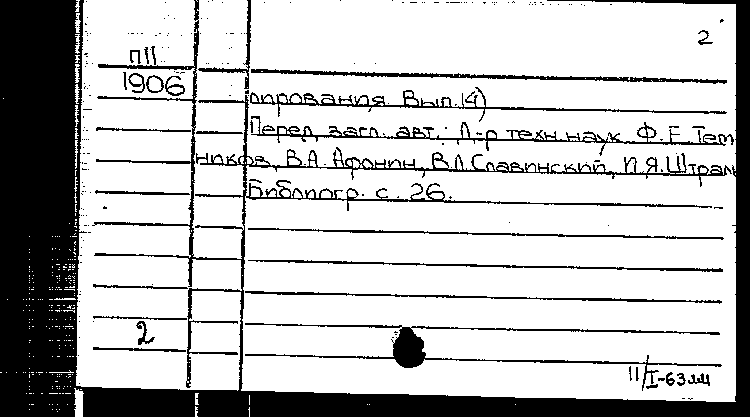 2
П11
1906
лирования. Вып. 14)
Перед загл. авт.: Д-р техн. наук Ф.Е. Тем
ников, В.А. Афонин, В.Л. Славинский, П.Я. Штрам
Библиогр. с. 26.
2
11/I-63